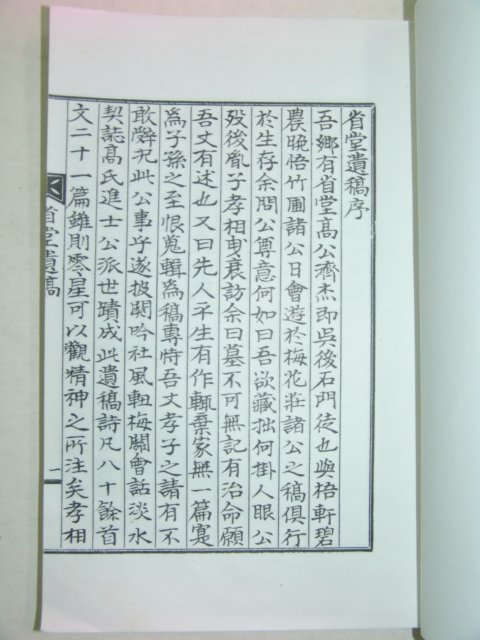 省堂遺稿序
吾鄉有省堂高公濟杰即吳後石門徒也與梧軒碧
農晚悟竹圃諸公日會遊於梅花莊諸公之稿俱行
於生存余問公尊意何如曰吾欲藏拙何掛人眼公
歿後胤子孝相曳衰訪余曰墓不可無記有治命願
吾丈有述也又曰先人平生有作輒棄家無一篇寔
爲子孫之至恨蒐輯爲稿專恃吾丈孝子之請有不
敢辭祀此公事乎遂披閱吟社風軸梅閣會話淡水
契誌高氏進士公派世蹟成此遺稿詩凡八十餘首
文二十一篇雖則零星可以觀精神之所注矣孝相
省堂遺稿
一